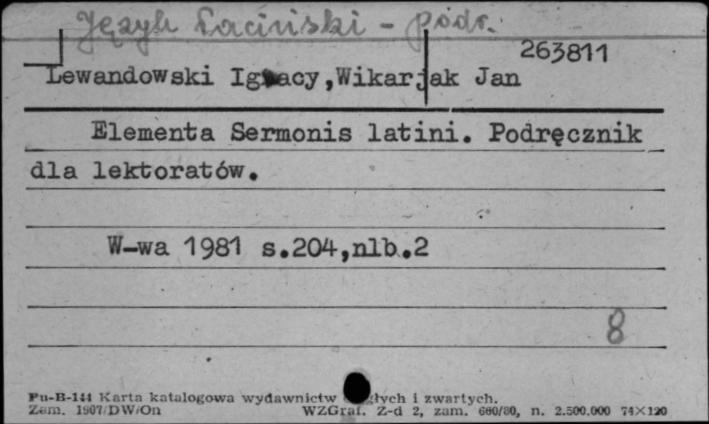 Język Łaciński - podr.
263811
Lewandowski Ignacy,Wikarjak Jan
Elementa Sermonis latini. Podręcznik
dla lektoratów.
W-wa 1981 s.204,nlb.2
8
Pu-B-144 Karta katalogowa wydawnictw ciągłych i zwartych.
Zam. 1907/DW/On WZGraf. Z-d 2, zam. 660/80, n. 2.500.000 74×120